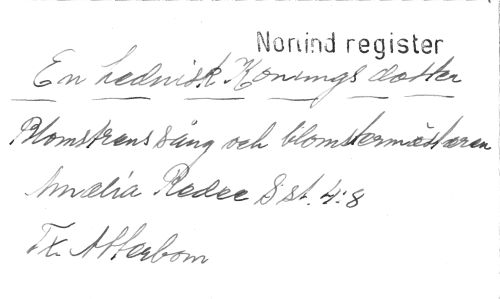 Norlind register
En hednisk Konungs dotter
Blomstrens sång och blomstermästaren
Amalia Redee 8 st. 4:8
Tx. Atterbom